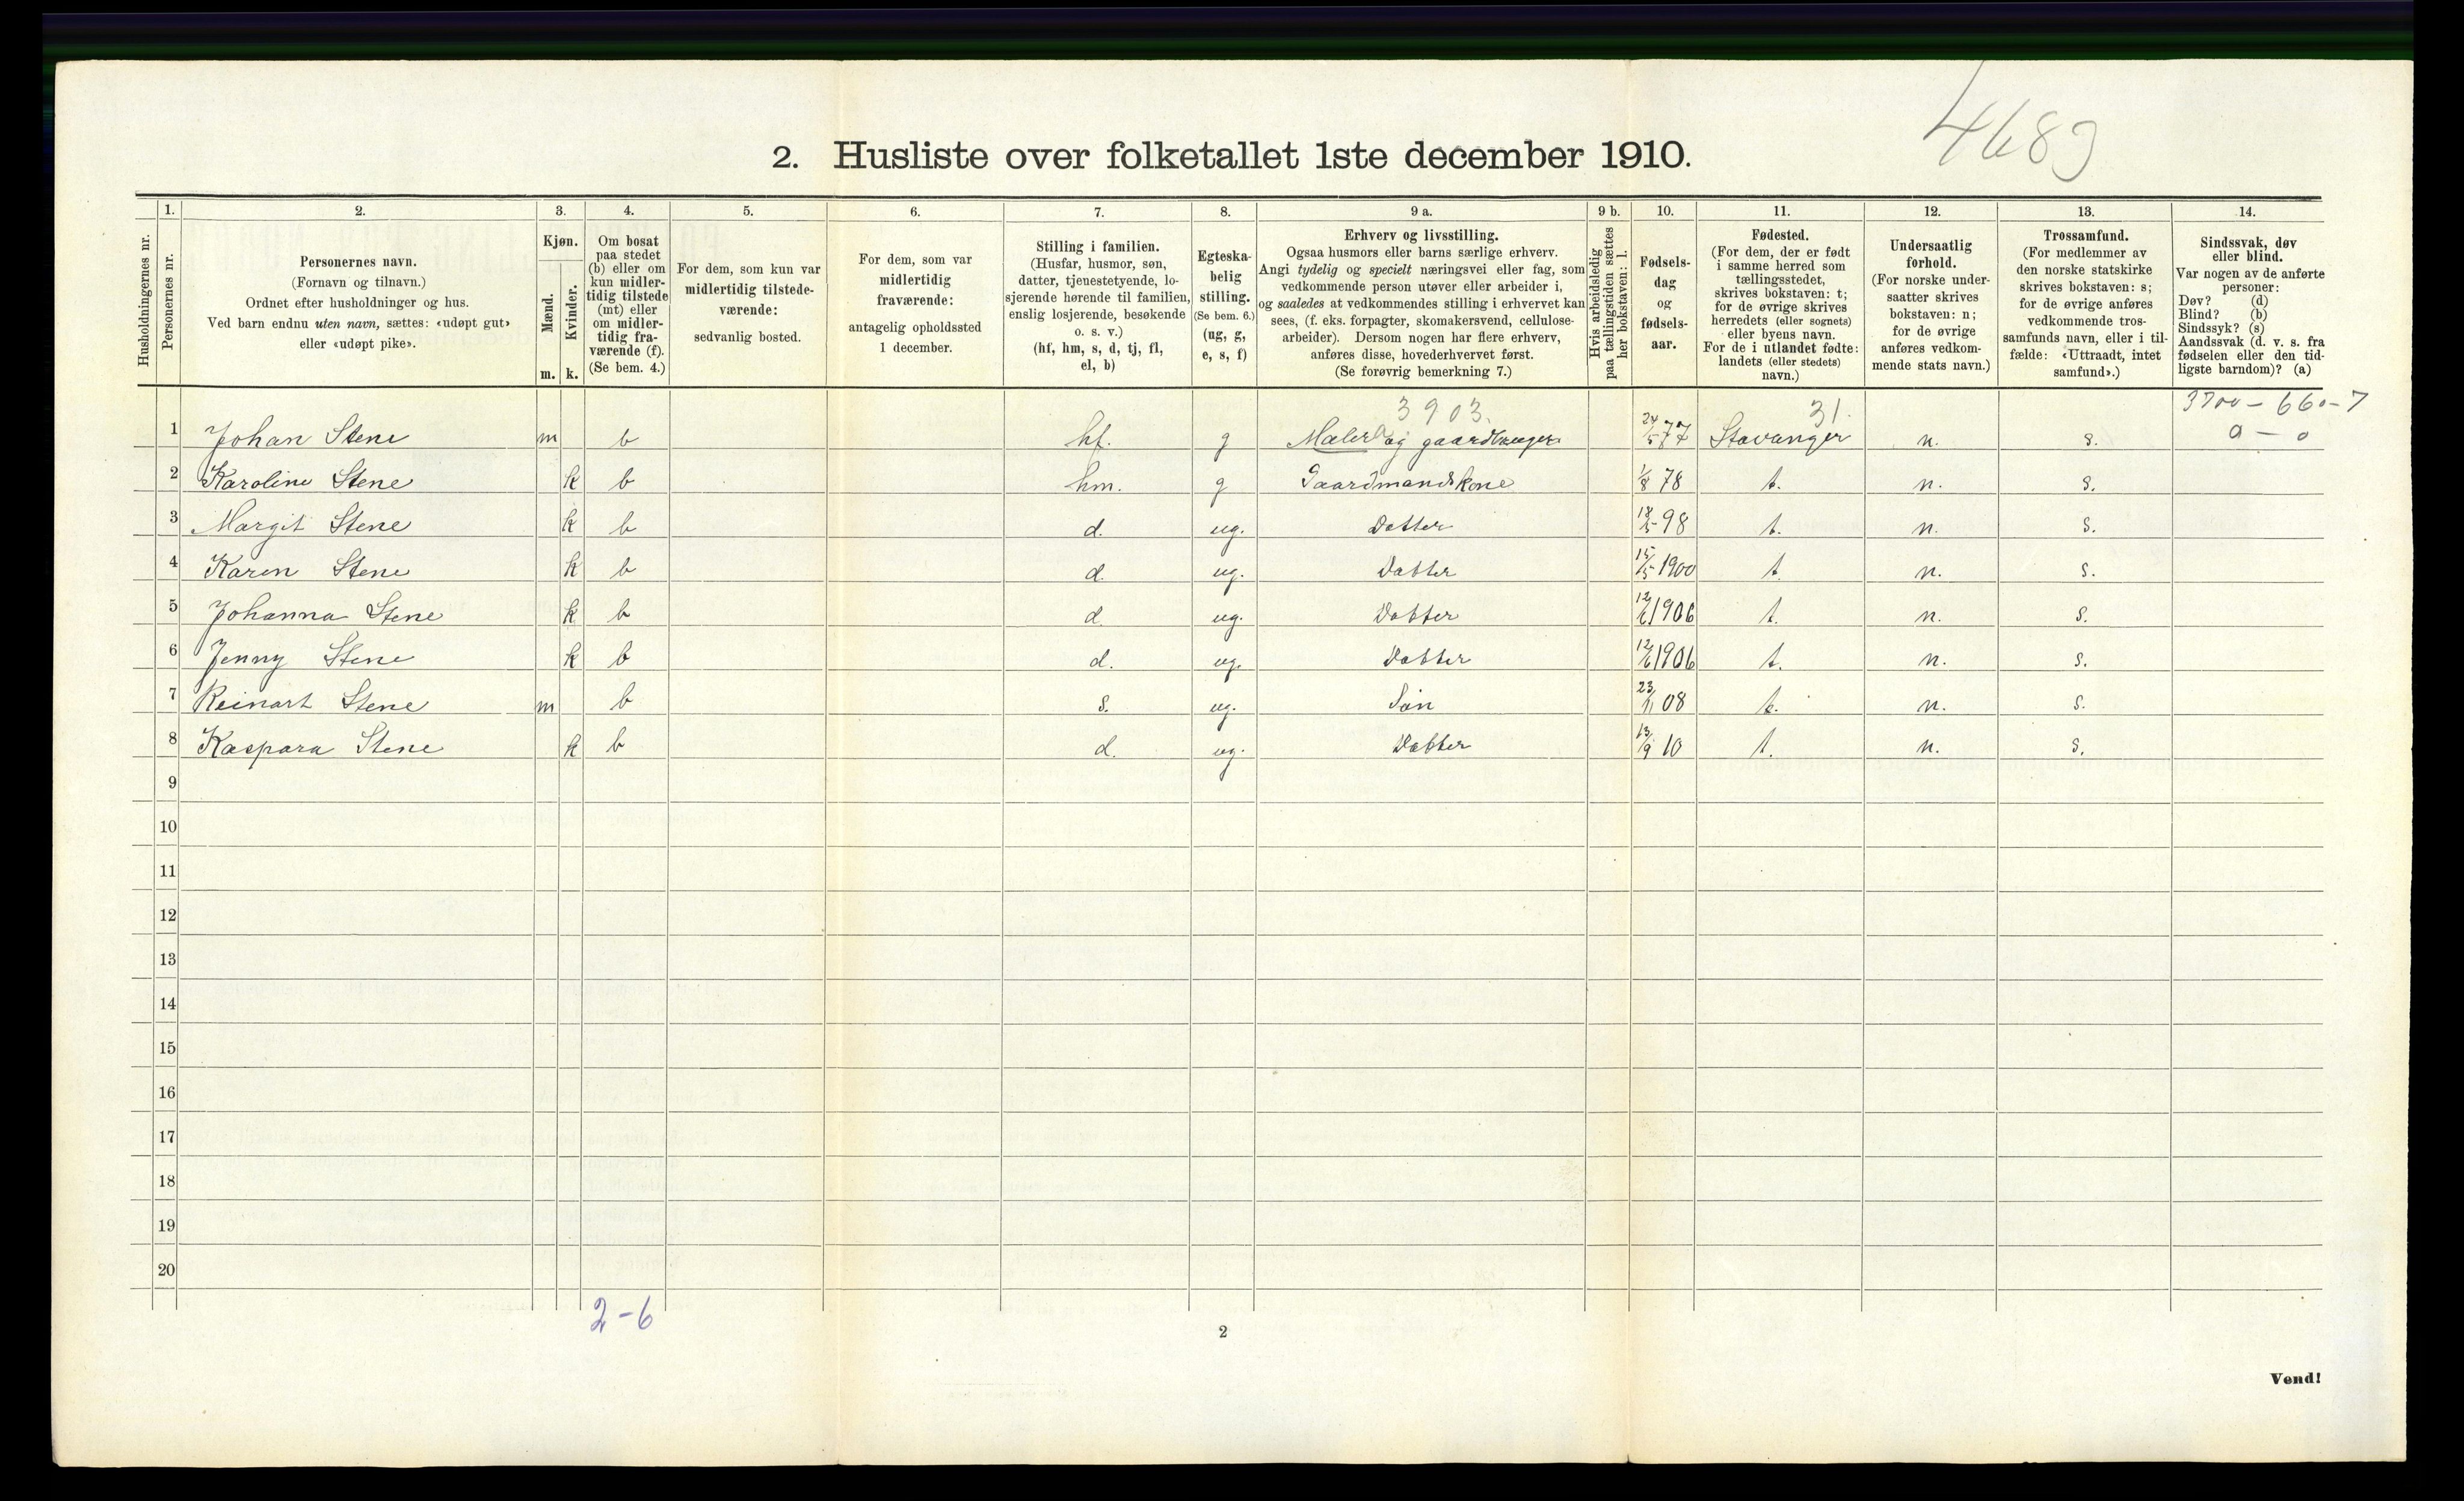 4689
2. Husliste over folketallet 1ste december 1910.
1. 2. 3. 4. 5. 6. 7. 8. 9 a. 9 b. 10. 11. 12. 13. 14.
Husholdningernes nr.
Personernes nr.
Personernes navn.
(Fornavn og tilnavn.)
Ordnet efter husholdninger og hus.
Ved barn endnu uten navn, sættes: «udøpt gut»
eller «udøpt pike».
Kjøn.
Mænd.
Kvinder.
m. k.
Om bosat
paa stedet
(b) eller om
kun midler-
tidig tilstede
(mt) eller
om midler-
tidig fra-
værende (f).
(Se bem. 4.)
For dem, som kun var
midlertidig tilstede-
værende:
sedvanlig bosted.
For dem, som var
midlertidig
fraværende:
antagelig opholdssted
1 december.
Stilling i familien.
(Husfar, husmor, søn,
datter, tjenestetyende, lo-
sjerende hørende til familien,
enslig losjerende, besøkende
o. s. v.)
(hf, hm, s, d, tj, fl,
el, b)
Egteska-
belig
stilling.
(Se bem. 6.)
(ug, g,
e, s, f)
Erhverv og livsstilling.
Ogsaa husmors eller barns særlige erhverv.
Angi tydelig og specielt næringsvei eller fag, som
vedkommende person utøver eller arbeider i,
og saaledes at vedkommendes stilling i erhvervet kan
sees, (f. eks. forpagter, skomakersvend, cellulose-
arbeider). Dersom nogen har flere erhverv,
anføres disse, hovederhvervet først.
(Se forøvrig bemerkning 7.)
Hvis arbeidsledig
paa tællingstiden sættes
her bokstaven: l.
Fødsels-
dag
og
fødsels-
aar.
Fødested.
(For dem, der er født
i samme herred som
tællingsstedet,
skrives bokstaven: t;
for de øvrige skrives
herredets (eller sognets)
eller byens navn.
For de i utlandet fødte:
landets (eller stedets)
navn.)
Undersaatlig
forhold.
(For norske under-
saatter skrives
bokstaven: n;
for de øvrige
anføres vedkom-
mende stats navn.)
Trossamfund.
(For medlemmer av
den norske statskirke
skrives bokstaven: s;
for de øvrige anføres
vedkommende tros-
samfunds navn, eller i til-
fælde: «Uttraadt, intet
samfund».)
Sindssvak, døv
eller blind.
Var nogen av de anførte
personer:
Døv? (d)
Blind? (b)
Sindssyk? (s)
Aandssvak (d. v. s. fra
fødselen eller den tid-
ligste barndom)? (a)
3903. 31. 3700 - 660-7
1 Johan Stene m b hf. g Maler og gaardbruger 24/5 77 Stavanger n. s. 0 - 0
2 Karoline Stene k b hm. g Gaardmandskone 1/8 78 t. n. s.
3 Margit Stene k b d. ug. Datter 18/5 98 t. n. s.
4 Karen Stene k b d. ug. Datter 15/5 1900 t. n. s.
5 Johanna Stene k b d. ug. Datter 12/6 1906 t. n. s.
6 Jenny Stene k b d. ug. Datter 12/6 1906 t. n. s.
7 Reinart Stene m b s. ug. Søn 23/11 08 t. n. s.
8 Kaspara Stene k b d. ug. Datter 13/9 10 t. n. s.
9
10
11
12
13
14
15
16
17
18
19
20
2-6
2
Vend!